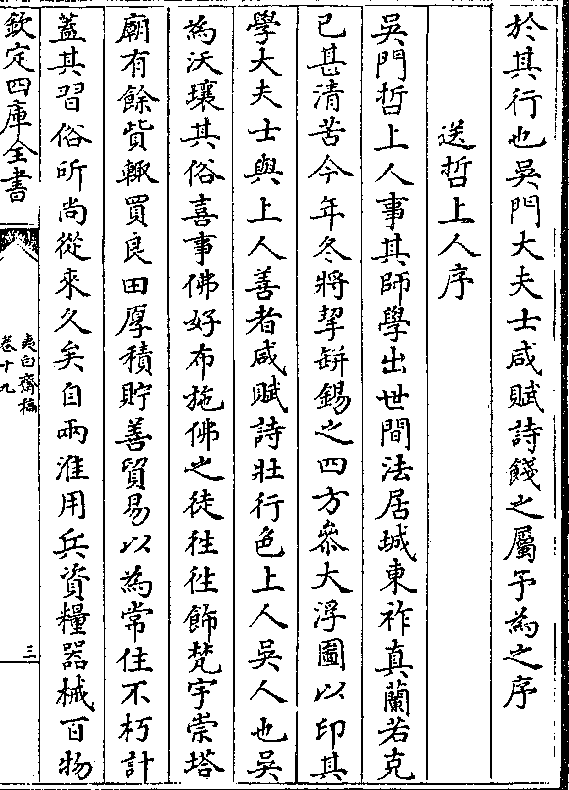 於其行也吳門大夫士咸賦詩餞之屬予為之序
送哲上人序
吳門哲上人事其師學出世間法居城東祚真蘭若克
已甚清苦今年冬將挈缾錫之四方叅大浮圖以印其
學大夫士與上人善者咸賦詩壯行色上人吳人也吳
為沃壤其俗喜事佛好布施佛之徒徃徃飾梵宇崇塔
廟有餘貲輙買良田厚積貯善貿易以為常住不朽計
蓋其習俗所尚從來久矣自兩淮用兵資糧器械百物
欽定四庫全書
夷白齋稿
卷十九
三